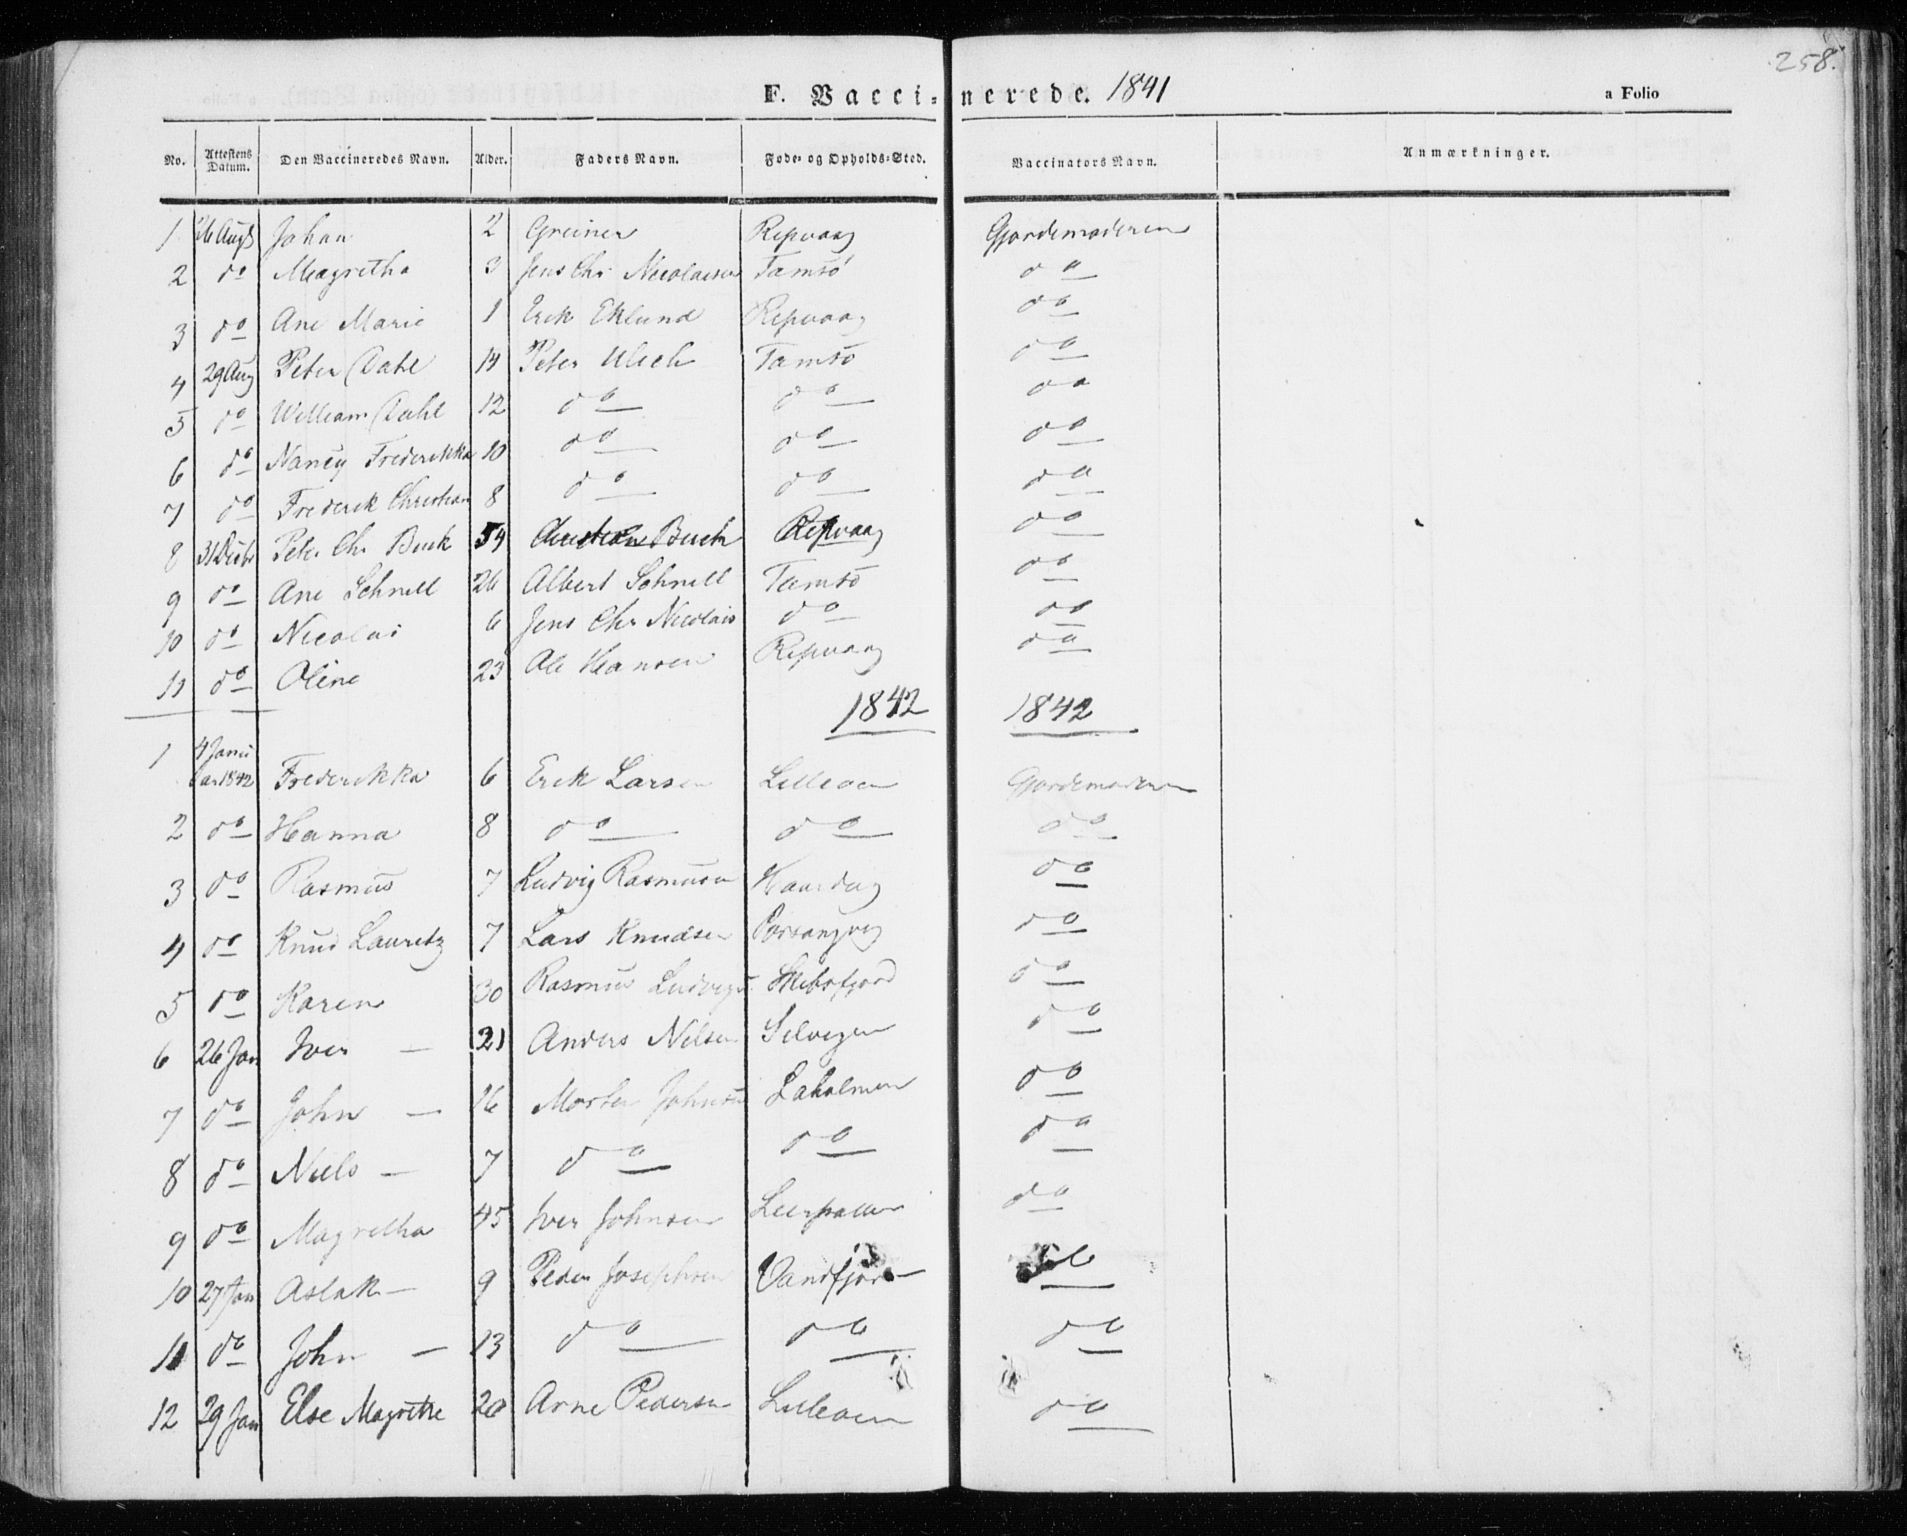 258.
F. Vacci-nerede. 1841
a Folio
No. Attestens Datum. Den Vaccineredes Navn. Alder. Faders Navn. Føde- og Opholds-Sted. Vaccinators Navn. Anmærkninger.
1 26 Augs Johan 2 Greiner Repvaag Gjordemoderen
2 do Magretha 3 Jens Chr Nicolaisen Tamsö do
3 do Ane Marie 1 Erik Eklund Repvaag do
4 29 Aug Peter Dahl 14 Peter Ulich Tamsö do
5 do William Dahl 12 do do do
6 do Nancy Frederikka 10 do do do
7 do Frederik Christian 8 do do do
8 31 Peter Chr Buck 54 Christian Buch Repvaag do
9 do Ane Schnell 26 Albert Schnell Tamsö do
10 do Nicolai 6 Jens Chr Nicolais do do
11 do Oline 23 Ole Hansen Repvaag do
1842 1842
1 4 Janu
ar 1842 Frederikka 6 Erik Larsen Gjordemoderen
2 do Hanna 8 do do do
3 do Rasmus 7 Ludvig Rasmusen do
4 do Knud Lauretz 7 Lars Knudsen Porsangvig do
5 do Karen 30 Rasmus Ludvigs. Skibsfjord do
6 26 Jan Iver — 21 Anders Nilsen Selvigen do
7 do John — 16 Morten Johnsen Laholmen do
8 do Niels — 7 do do do
9 do Magretha 45 Iver Johnsen Leerpollen do
10 27 Jan Aslak — 9 Peder Josephsen Vandfjord do
11 do John — 13 do do do
12 29 Jan Else Magrethe 20 Arne Pedersen do